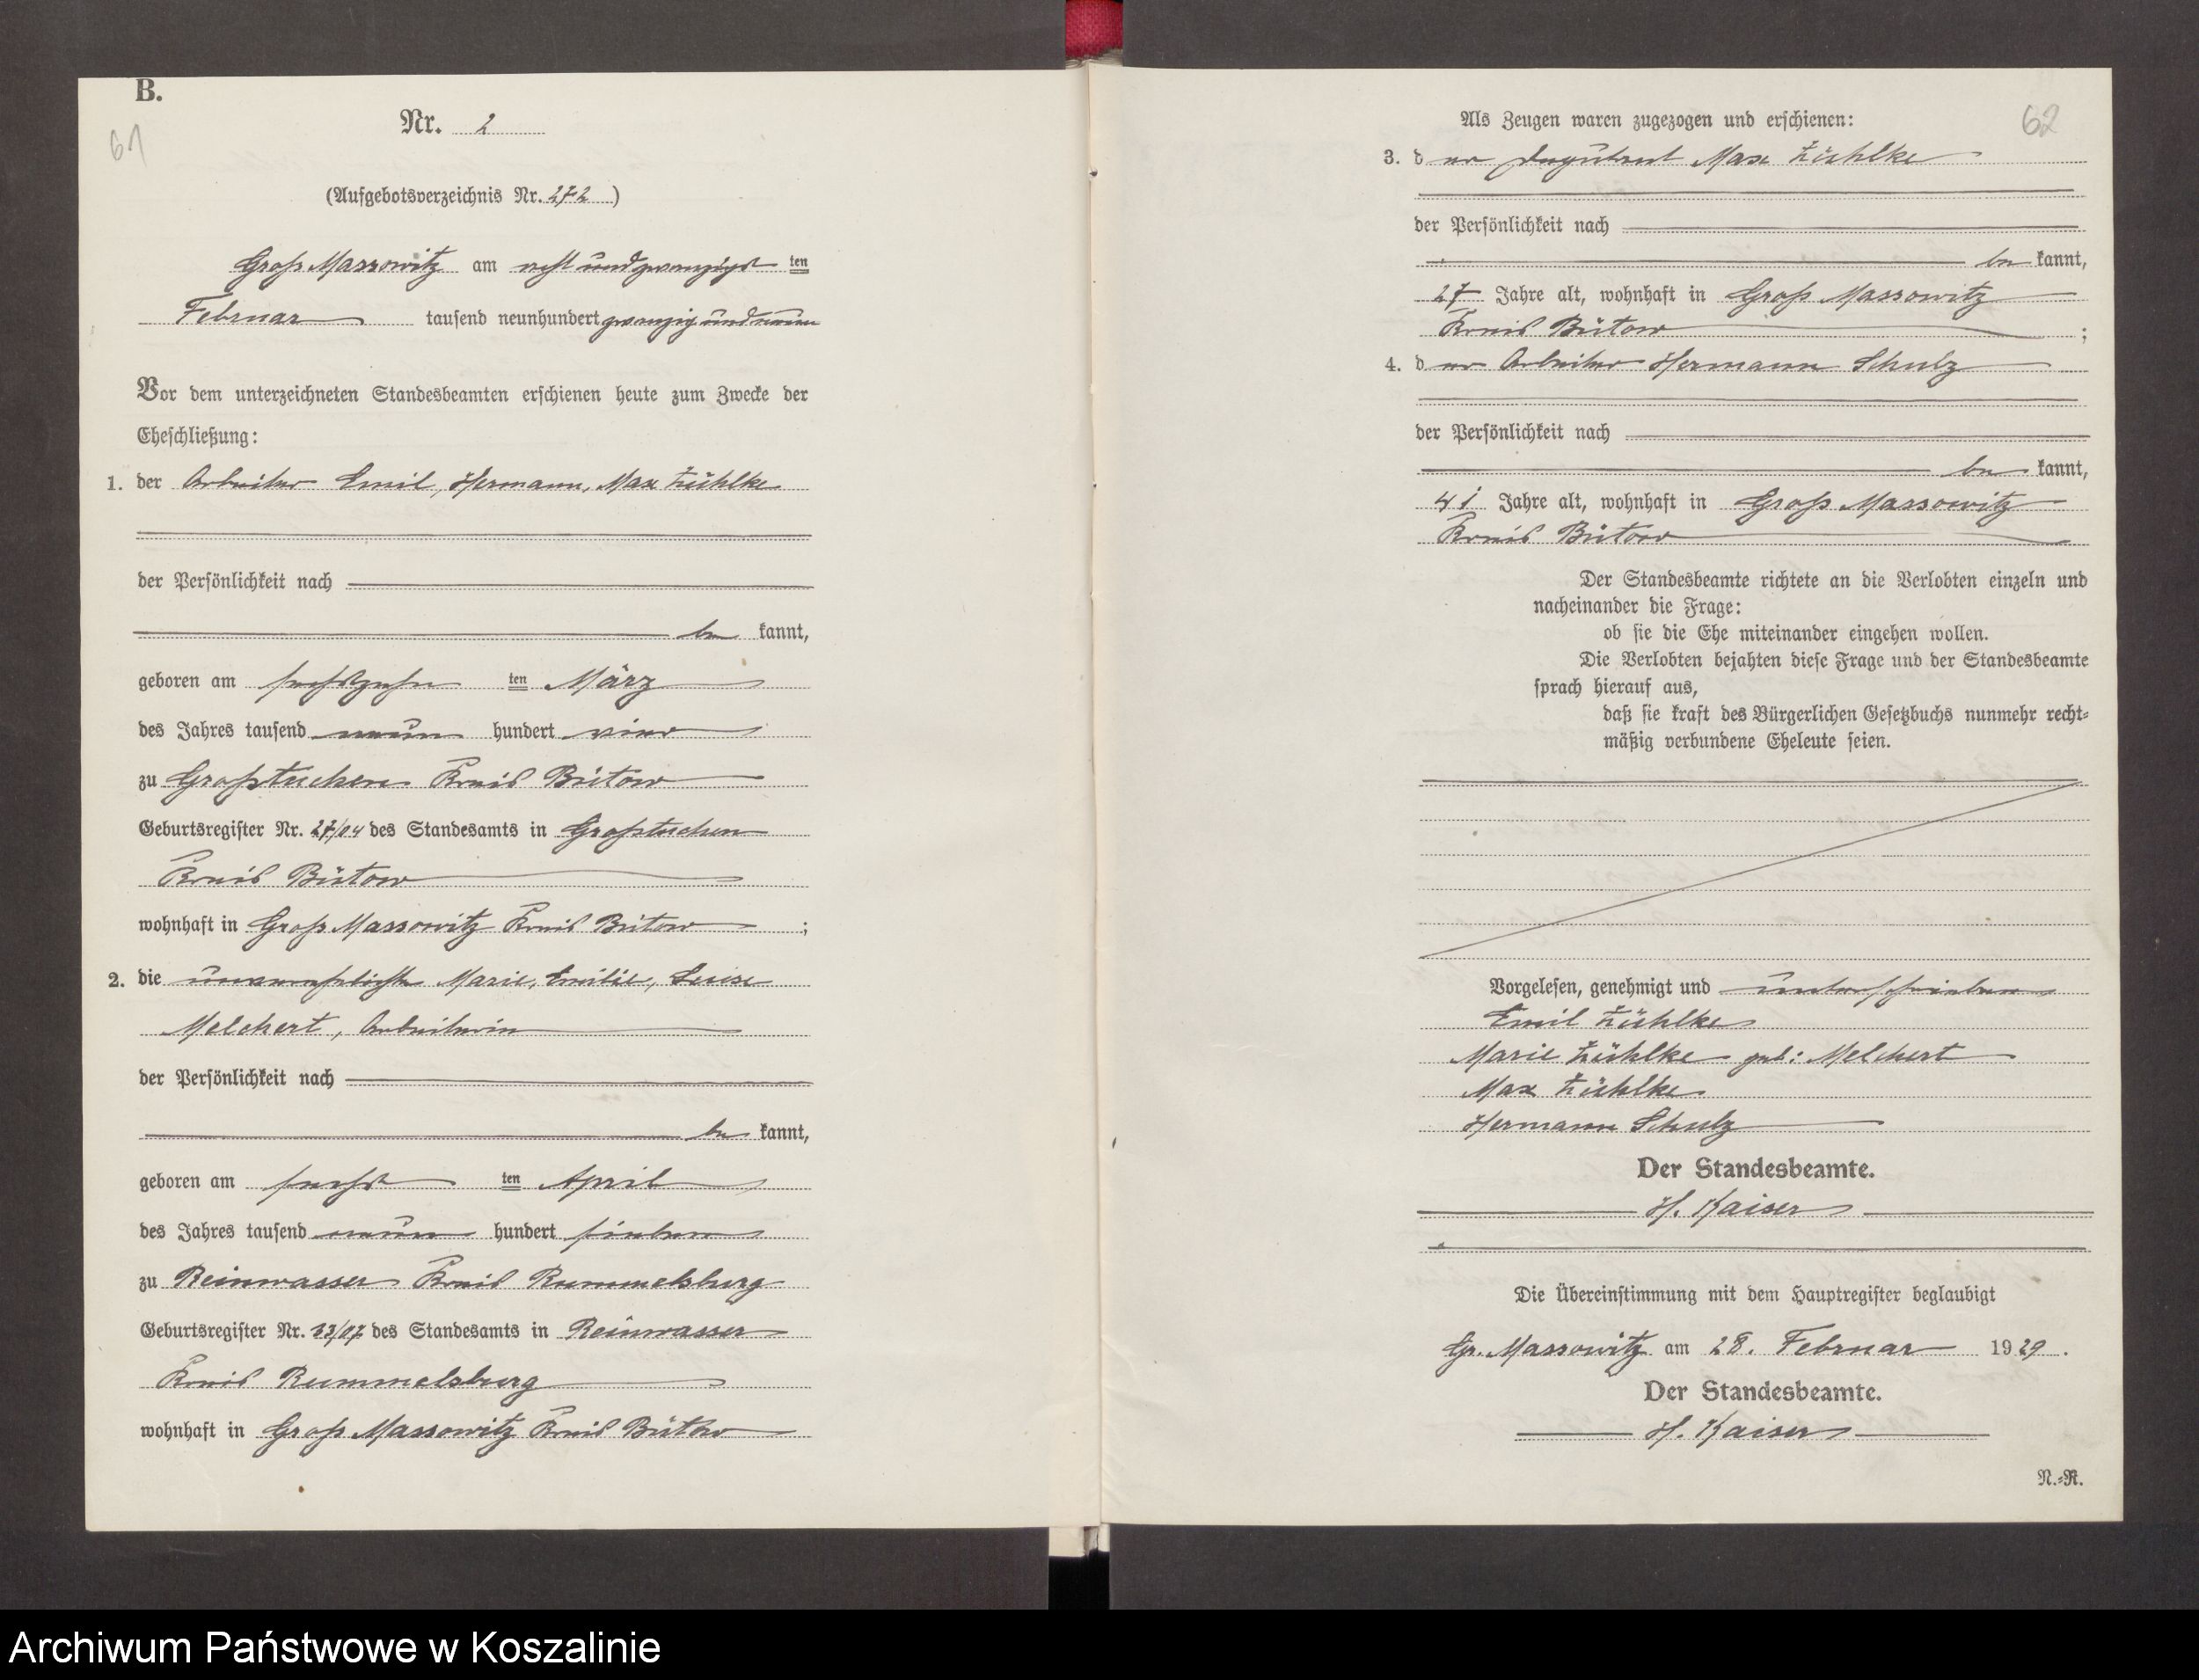 B.
61
Nr. 2
(Aufgebotsverzeichnis Nr. 272)
Groß Massowitz am acht und zwanzigst ten
Februar tausend neunhundert zwanzig und neun
Vor dem unterzeichneten Standesbeamten erschienen heute zum Zwecke der
Eheschließung:
1. der Arbeiter Emil, Hermann, Max Zühlke
der Persönlichkeit nach
be kannt,
geboren am sechszehn ten März
des Jahres tausend neun hundert vier
zu Großtuchen Kreis Bütow
Geburtsregister Nr. 27/04 des Standesamts in Großtuchen
Kreis Bütow
wohnhaft in Groß Massowitz Kreis Bütow ;
2. die unverehelichte Marie, Emilie, Luise
Melchert, Arbeiterin
der Persönlichkeit nach
be kannt,
geboren am sechs ten April
des Jahres tausend neun hundert sieben
zu Reinwasser Kreis Rummelsburg
Geburtsregister Nr. 23/07 des Standesamts in Reinwasser
Kreis Rummelsburg
wohnhaft in Groß Massowitz Kreis Bütow
62
Als Zeugen waren zugezogen und erschienen:
3. d er Deputant Max Zühlke
der Persönlichkeit nach
be kannt,
27 Jahre alt, wohnhaft in Groß Massowitz
Kreis Bütow ;
4. d er Arbeiter Hermann Schulz
der Persönlichkeit nach
be kannt,
41 Jahre alt, wohnhaft in Groß Massowitz
Kreis Bütow
Der Standesbeamte richtete an die Verlobten einzeln und
nacheinander die Frage:
ob sie die Ehe miteinander eingehen wollen.
Die Verlobten bejahten diese Frage und der Standesbeamte
sprach hierauf aus,
daß sie kraft des Bürgerlichen Gesetzbuchs nunmehr recht-
mäßig verbundene Eheleute seien.
Vorgelesen, genehmigt und unterschrieben
Emil Zühlke
Marie Zühlke geb: Melchert
Max Zühlke
Hermann Schulz
Der Standesbeamte.
H. Kaiser
Die Übereinstimmung mit dem Hauptregister beglaubigt
Gr. Massowitz am 28. Februar 1929.
Der Standesbeamte.
H. Kaiser
N.-R.
Archiwum Państwowe w Koszalinie